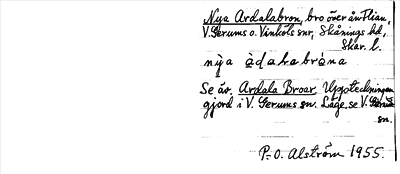 Nya Ardalabron, bro över ån Flian,
V. Gerums o. Vinköls snr, Skånings hd,
Skar. l.
nỳa àdalabròna
Se äv. Ardala Broar. Uppteckningen
gjord i V. Gerums sn. Läge, se V. Gerums
sn.
P.-O. Alström 1955.